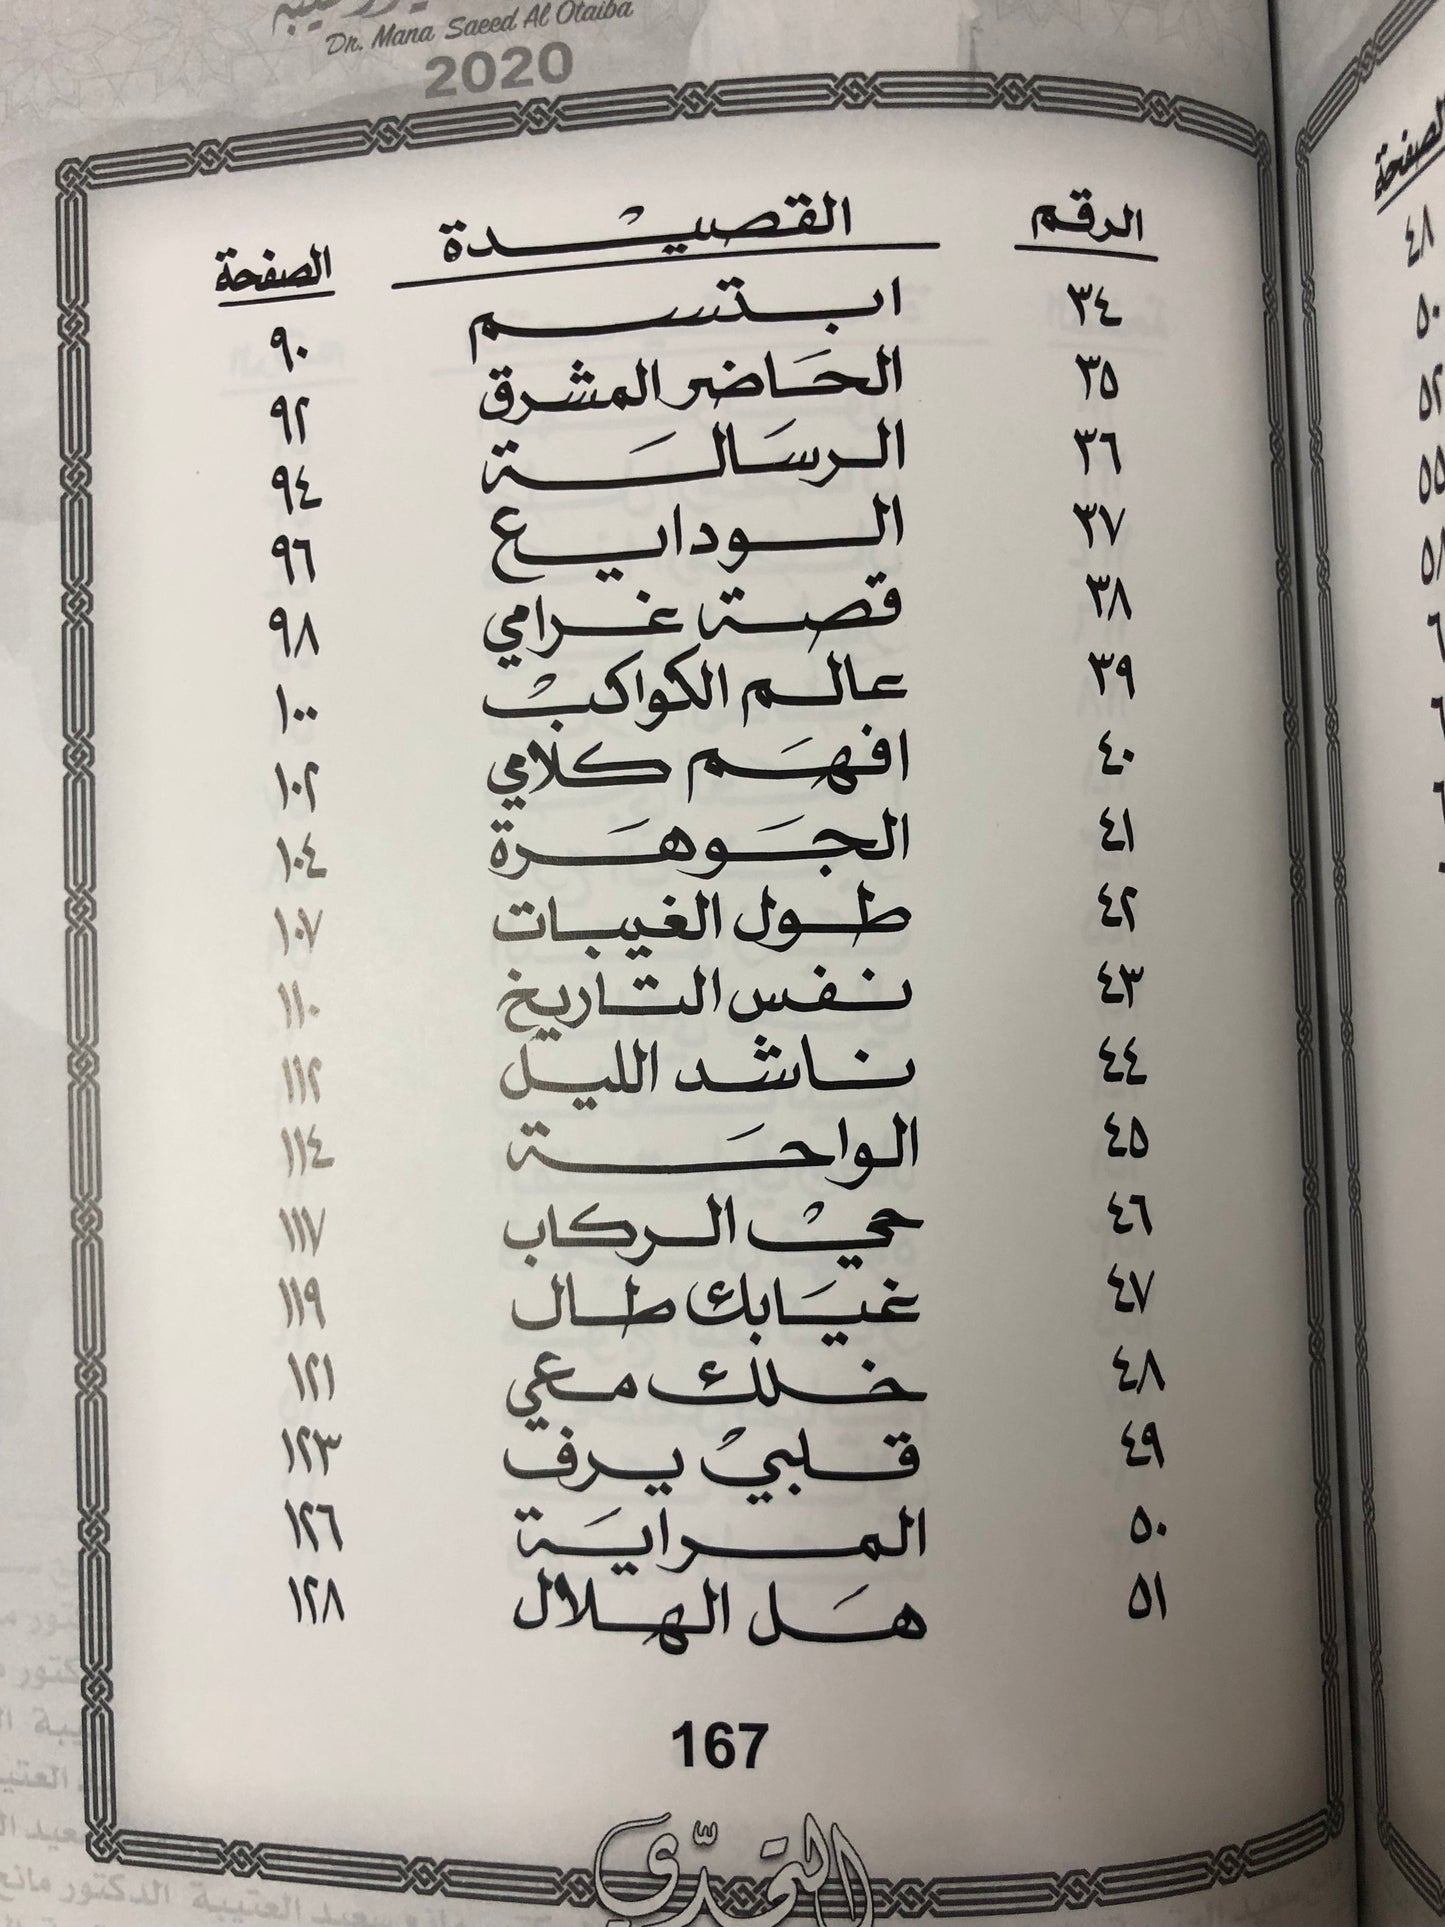 Dr. Mana Saeed Al Otaiba
2020
الرقم القصيدة الصفحة
٣٤ ابتسم ٩٠
٣٥ الحَاضر المشرق ٩٢
٣٦ الرسَالَة ٩٤
٣٧ الودايع ٩٦
٣٨ قصة غرامي ٩٨
٣٩ عالم الكواكبْ ١٠٠
٤٠ افهَم كلامي ١٠٢
٤١ الجَوهَرة ١٠٤
٤٢ طول الغيبات ١٠٧
٤٣ نفس التاريخ ١١٠
٤٤ ناشد الليل ١١٢
٤٥ الواحَة ١١٤
٤٦ حيْ الركاب ١١٧
٤٧ غيَابك طال ١١٩
٤٨ خلك معي ١٢١
٤٩ قلبيْ يرف ١٢٣
٥٠ المرايَة ١٢٦
٥١ هَل الهلال ١٢٨
167
التحدّي
الصفحة
٤٨
٥٠
٥٢
٥٥
٥٨